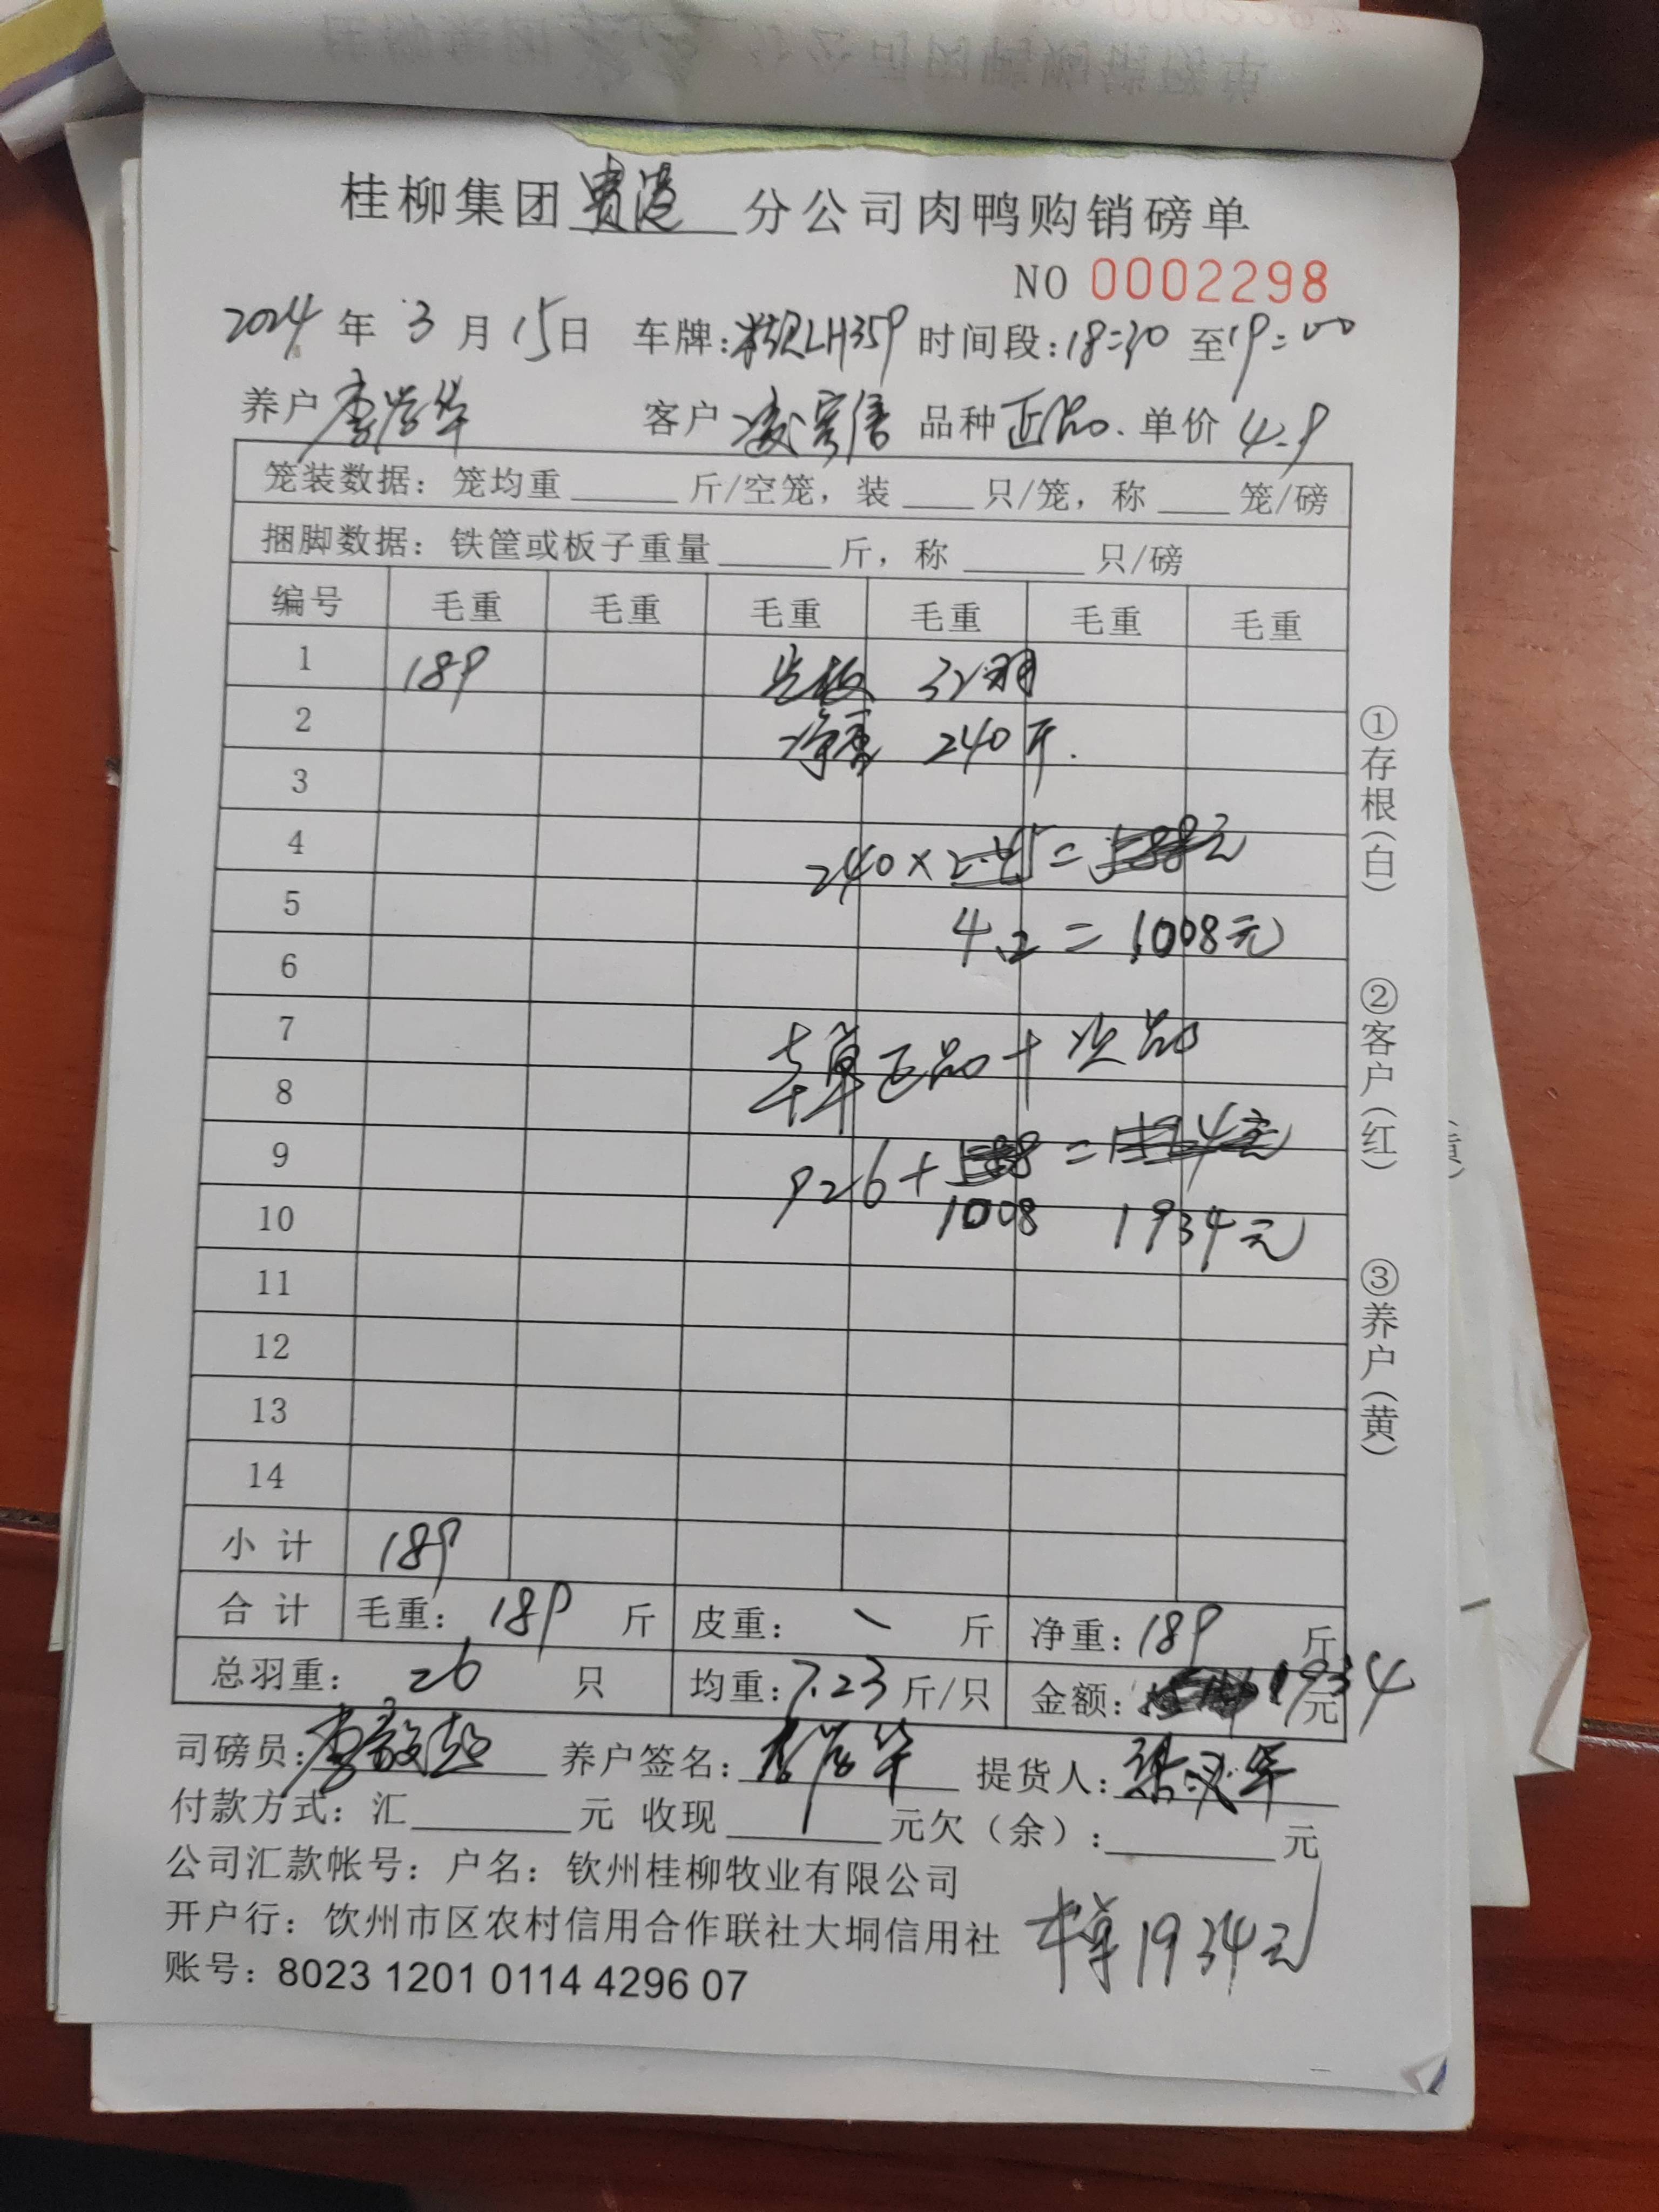 桂柳集团贵港分公司肉鸭购销磅单
NO 0002298
2024年3月15日 车牌:LH359 时间段:18:30至19:00
养户 李学华 客户 品种 正品. 单价 4.9
笼装数据：笼均重____斤/空笼，装____只/笼，称____笼/磅
捆脚数据：铁筐或板子重量____斤，称____只/磅
编号 毛重 毛重 毛重 毛重 毛重 毛重
1 189 32羽
2 净重 240斤.
3
4 240×2.45=588元
5 4.2=1008元
6
7 本单正品+次品
8
9 926+588=1514元
10 1008 1934元
11
12
13
14
小计 189
合计 毛重：189斤 皮重：斤 净重：189斤
总羽重：26只 均重：7.23斤/只 金额：1934元
司磅员：李 养户签名：李学华 提货人：
付款方式：汇____元 收现____元欠（余）：____元
公司汇款帐号：户名：钦州桂柳牧业有限公司
开户行：饮州市区农村信用合作联社大垌信用社
本单1934元
账号：8023 1201 0114 4296 07
①存根(白)
②客户(红)
③养户(黄)